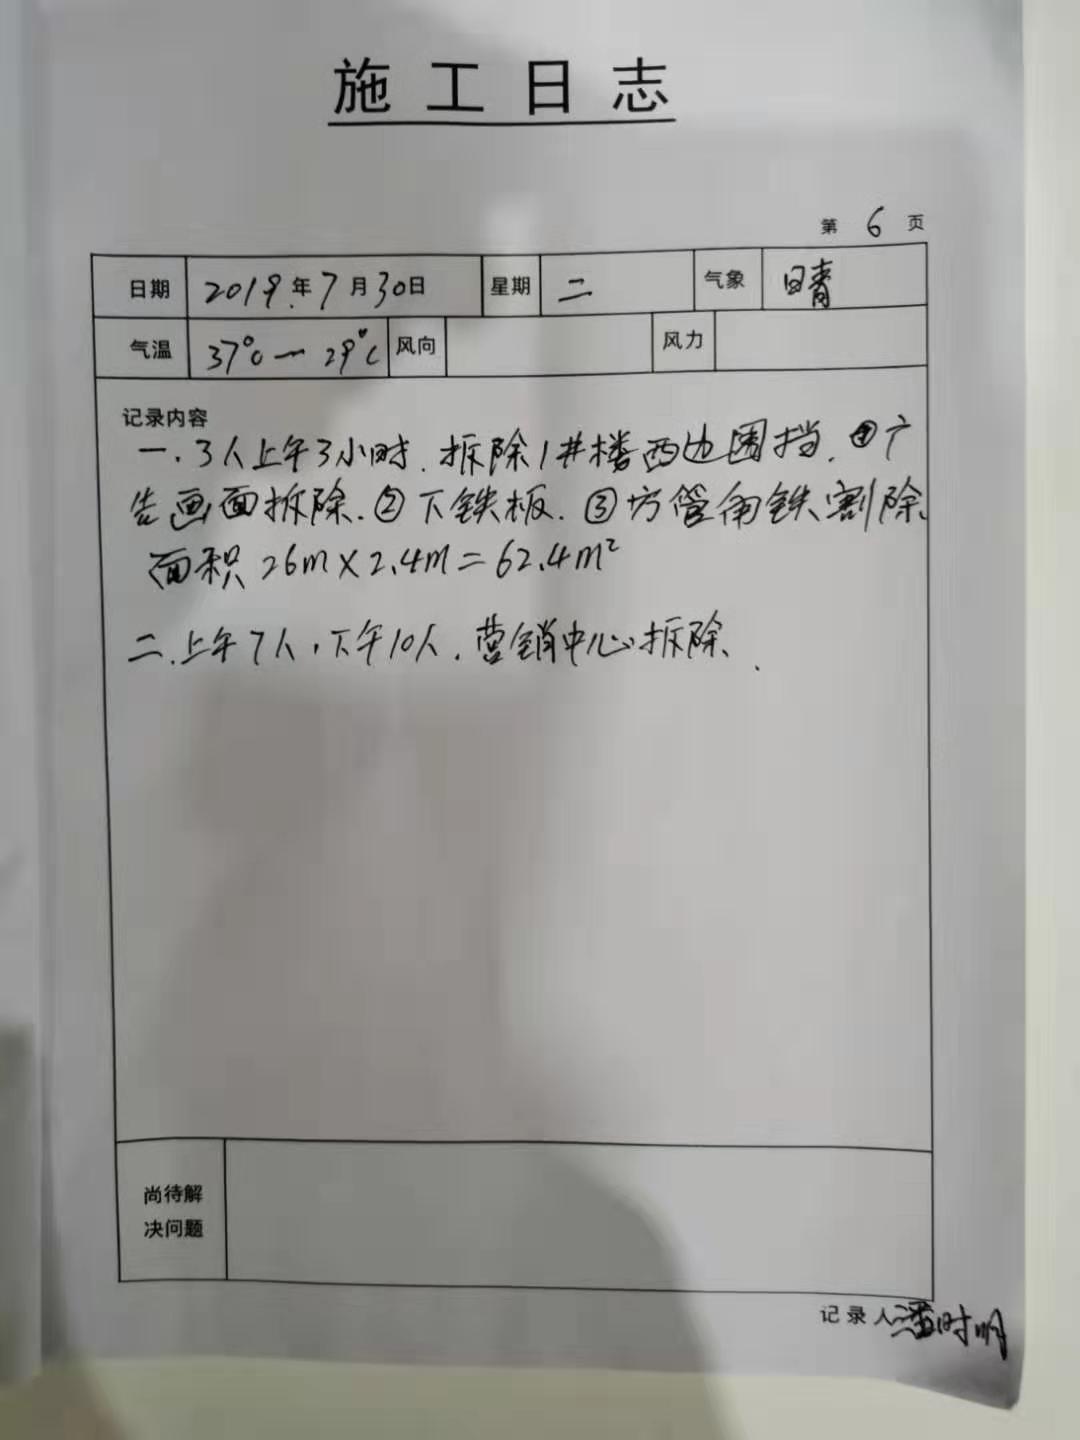 施工日志
第 6 页
日期 2019年7月30日 星期 二 气象 晴
气温 37℃—29℃ 风向 风力
记录内容
一.3人上午3小时.拆除1#楼西边围挡.①广
告画面拆除.②下铁板.③方管角铁割除
面积26m×2.4m=62.4m²
二.上午7人,下午10人.营销中心拆除.
尚待解
决问题
记录人潘时明